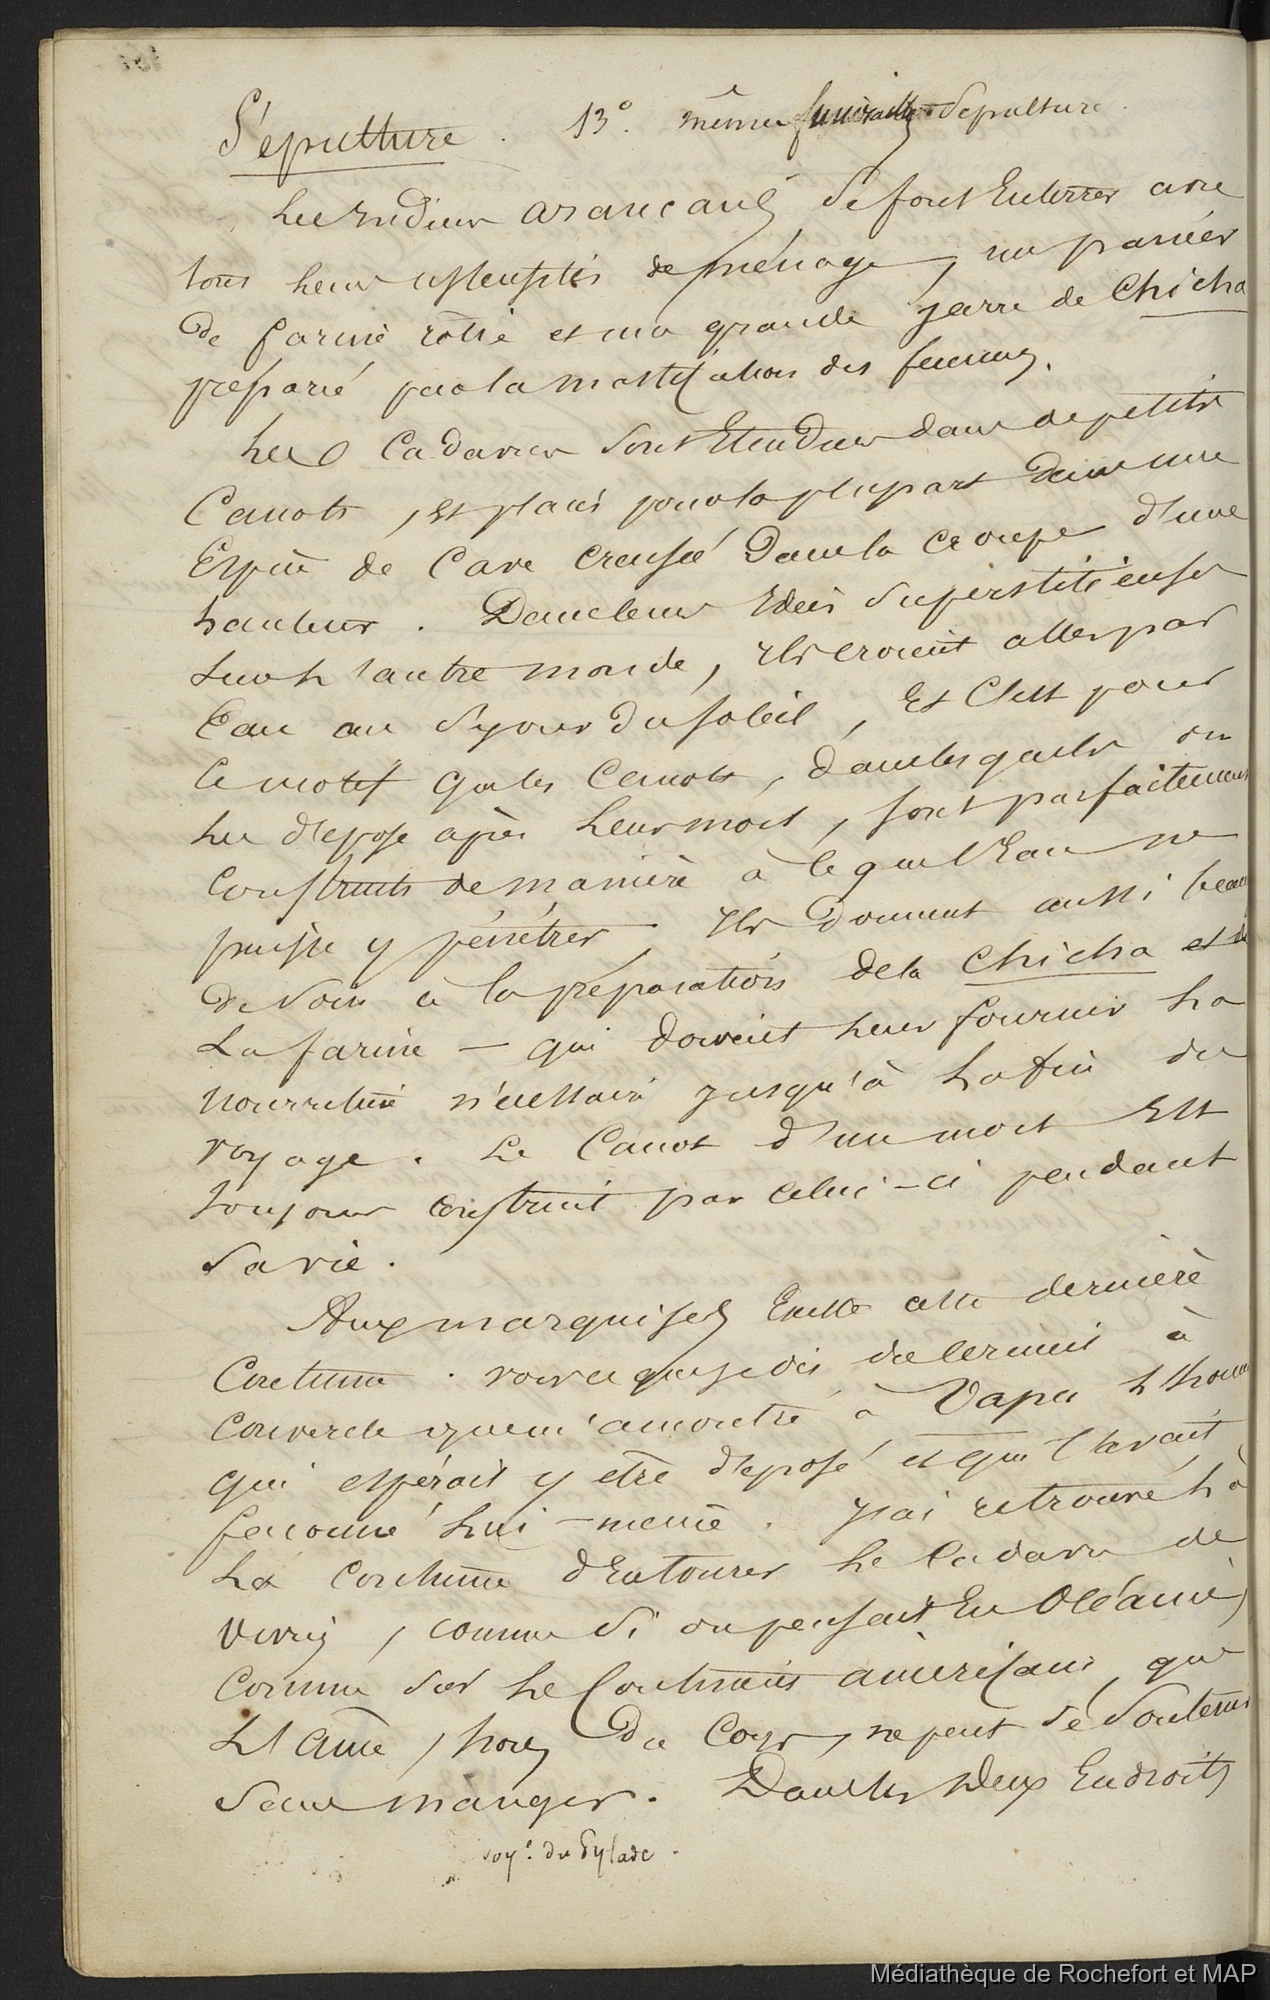 Sépulture. 13° même funérailles Sépulture.
Les Indiens araucans se font Enterrer avec
tous leurs ustensiles de ménage, un panier
de farine rôtie et une grande jarre de Chicha
préparé par la mastication des femmes.
Les Cadavres sont Etendus dans de petits
Canots, et placés pour la plupart dans une
Espèce de Cave creusée Dans la croupe d'une
hauteur. Dans leurs Idées Superstitieuses
sur l'autre monde, ils croient aller par
Eau au Séjour Du soleil, Et C'est pour
ce motif que les Canots, dans lesquels on
les dépose après leur mort, sont parfaitement
construits de manière à ce que l'Eau ne
puisse y pénétrer. Ils Donnent aussi beau
de soin à la préparation de la Chicha et de
La farine - qui doivent leur fournir la
nourriture nécessaire jusqu'à la fin du
voyage. Le Canot d'un mort Est
toujours construit par celui-ci pendant
sa vie.
Aux marquises Existe cette dernière
Coutume. voir ce que je dis du cercueil à
Couvercle que m'a montré à Vapu l'homme
qui espérait y être déposé et qui l'avait
façonné lui-même. J'ai retrouvé là
La Coutume d'Entourer le Cadavre de
vivres, comme si on pensait En Océanie,
comme sur le Continent américain, que
L'Ame, hors Du Corps, ne peut se soutenir
sans manger. Dans les Deux Endroits
voy.e du Pylade.
Médiathèque de Rochefort et MAP